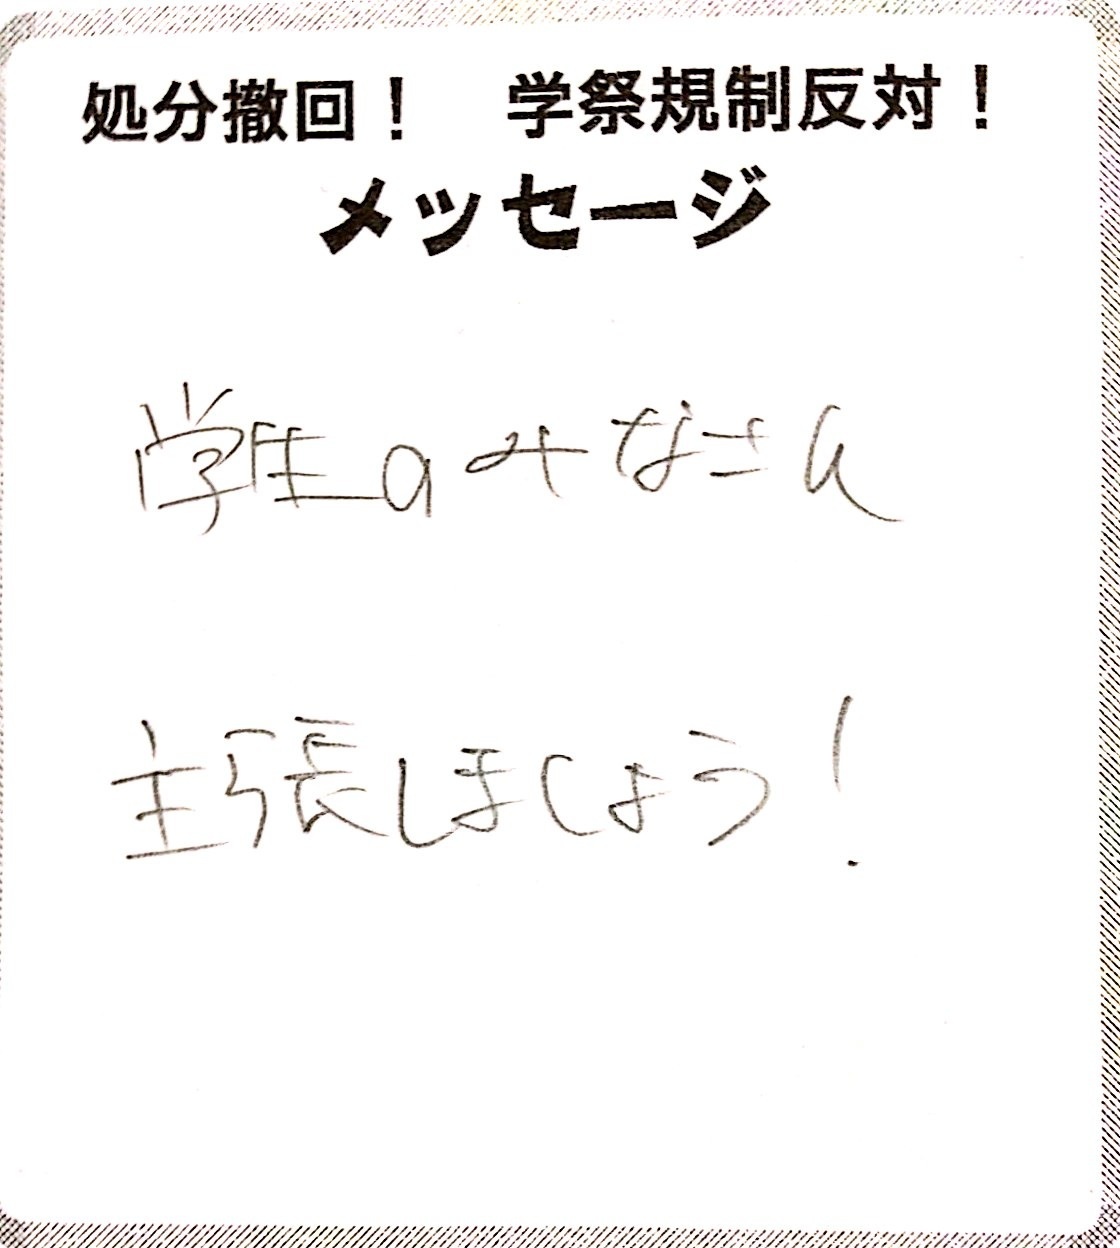 処分撤回！　学祭規制反対！
メッセージ
学生のみなさん
主張しましょう！